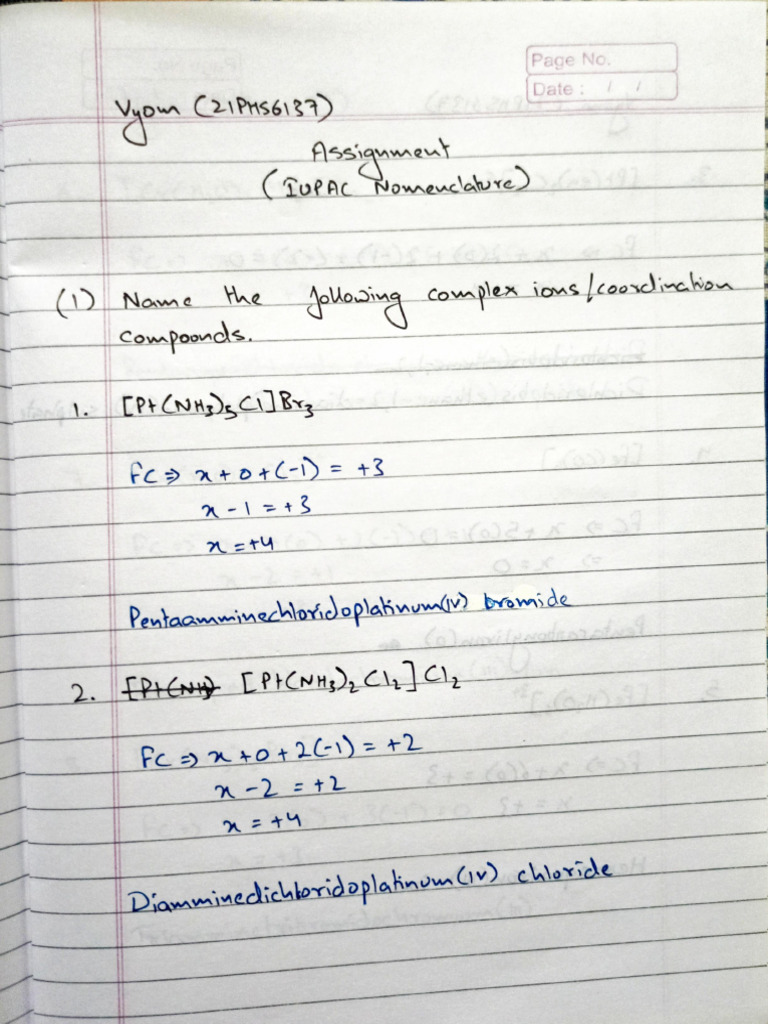 Page No.
Date : / /
Vyom (21PMS6137)
Assignment
(IUPAC Nomenclature)
(1) Name the following complex ions/coordination
compounds.
1. [Pt(NH₃)₅Cl]Br₃
FC ⇒ x + 0 + (-1) = +3
x - 1 = +3
x = +4
Pentaamminechloridoplatinum(IV) bromide
2. [Pt(NH₃) [Pt(NH₃)₂Cl₂]Cl₂
FC ⇒ x + 0 + 2(-1) = +2
x - 2 = +2
x = +4
Diamminedichloridoplatinum(IV) chloride